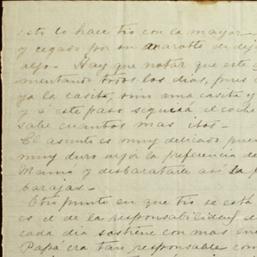 esto lo hace tío con la mayor
y cegado por un
algo. Hay que notar que este
mentando todos los días, pues
ya la casita, otra casita y
y a este paso seguirá el coche
sabe cuantos mas
El asunto es muy delicado pues
muy duro la preferencia de
Mamá y desbaratarle así la
barajas.
Otro punto en que tío se está
es el de la responsabilidad
cada día sostiene con mas
Papá era tan responsable com